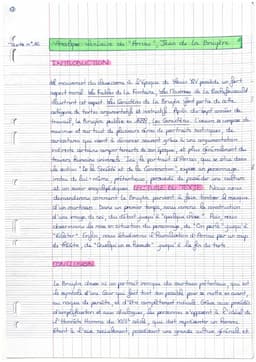 Texte n°16
"Analyse linéaire de "Arrias", Jean de La Bruyère"
INTRODUCTION
Le mouvement du classicisme à l'époque de Louis XIV possède un fort
aspect moral. Les Fables de La Fontaine, Les Maximes de La Rochefoucauld
illustrent cet aspect. Les Caractères de La Bruyère font partie de cette
catégorie de textes argumentatifs et instructifs. Après dix-sept années de
travail, La Bruyère publie en Les Caractères. L'oeuvre se compose de
maximes et surtout de plusieurs séries de portraits satiriques, de
caractères qui visent à dénoncer suivant grâce à une argumentation
indirecte certains comportements de son époque, et plus généralement des
travers humains universels. Ici le portrait d'Arrias, qui se situe dans
la section "De la Société et de la Conversation", expose un personnage
imbu de lui-même, prétentieux, persuadé de posséder une culture
et un savoir encyclopédiques. LECTURE DU TEXTE. Nous nous
demanderons comment La Bruyère parvient à faire tomber le masque
d'un courtisan. Dans un premier temps, nous verrons la construction
d'une image de soi, du début jusqu'à "quelque chose". Puis, nous
observerons la mise en situation du personnage, de "On parle" jusqu'à
"éclater". Enfin, nous étudierons l'humiliation d'Arrias par un coup
de théâtre, de "Quelqu'un se hasarde" jusqu'à la fin du texte.
CONCLUSION
La Bruyère dresse ici un portrait moqueur du courtisan prétentieux, qui est
le symbole d'une Cour qui fait tout son possible pour se mettre en avant,
au risque de paraître, et d'être complètement ridicule. Grâce aux procédés
d'amplification et aux dialogues, les personnes s'opposent à l'idéal de
l'Honnête Homme du XVIIe siècle, qui doit représenter un homme
étant à l'aise socialement, possédant une grande culture générale et